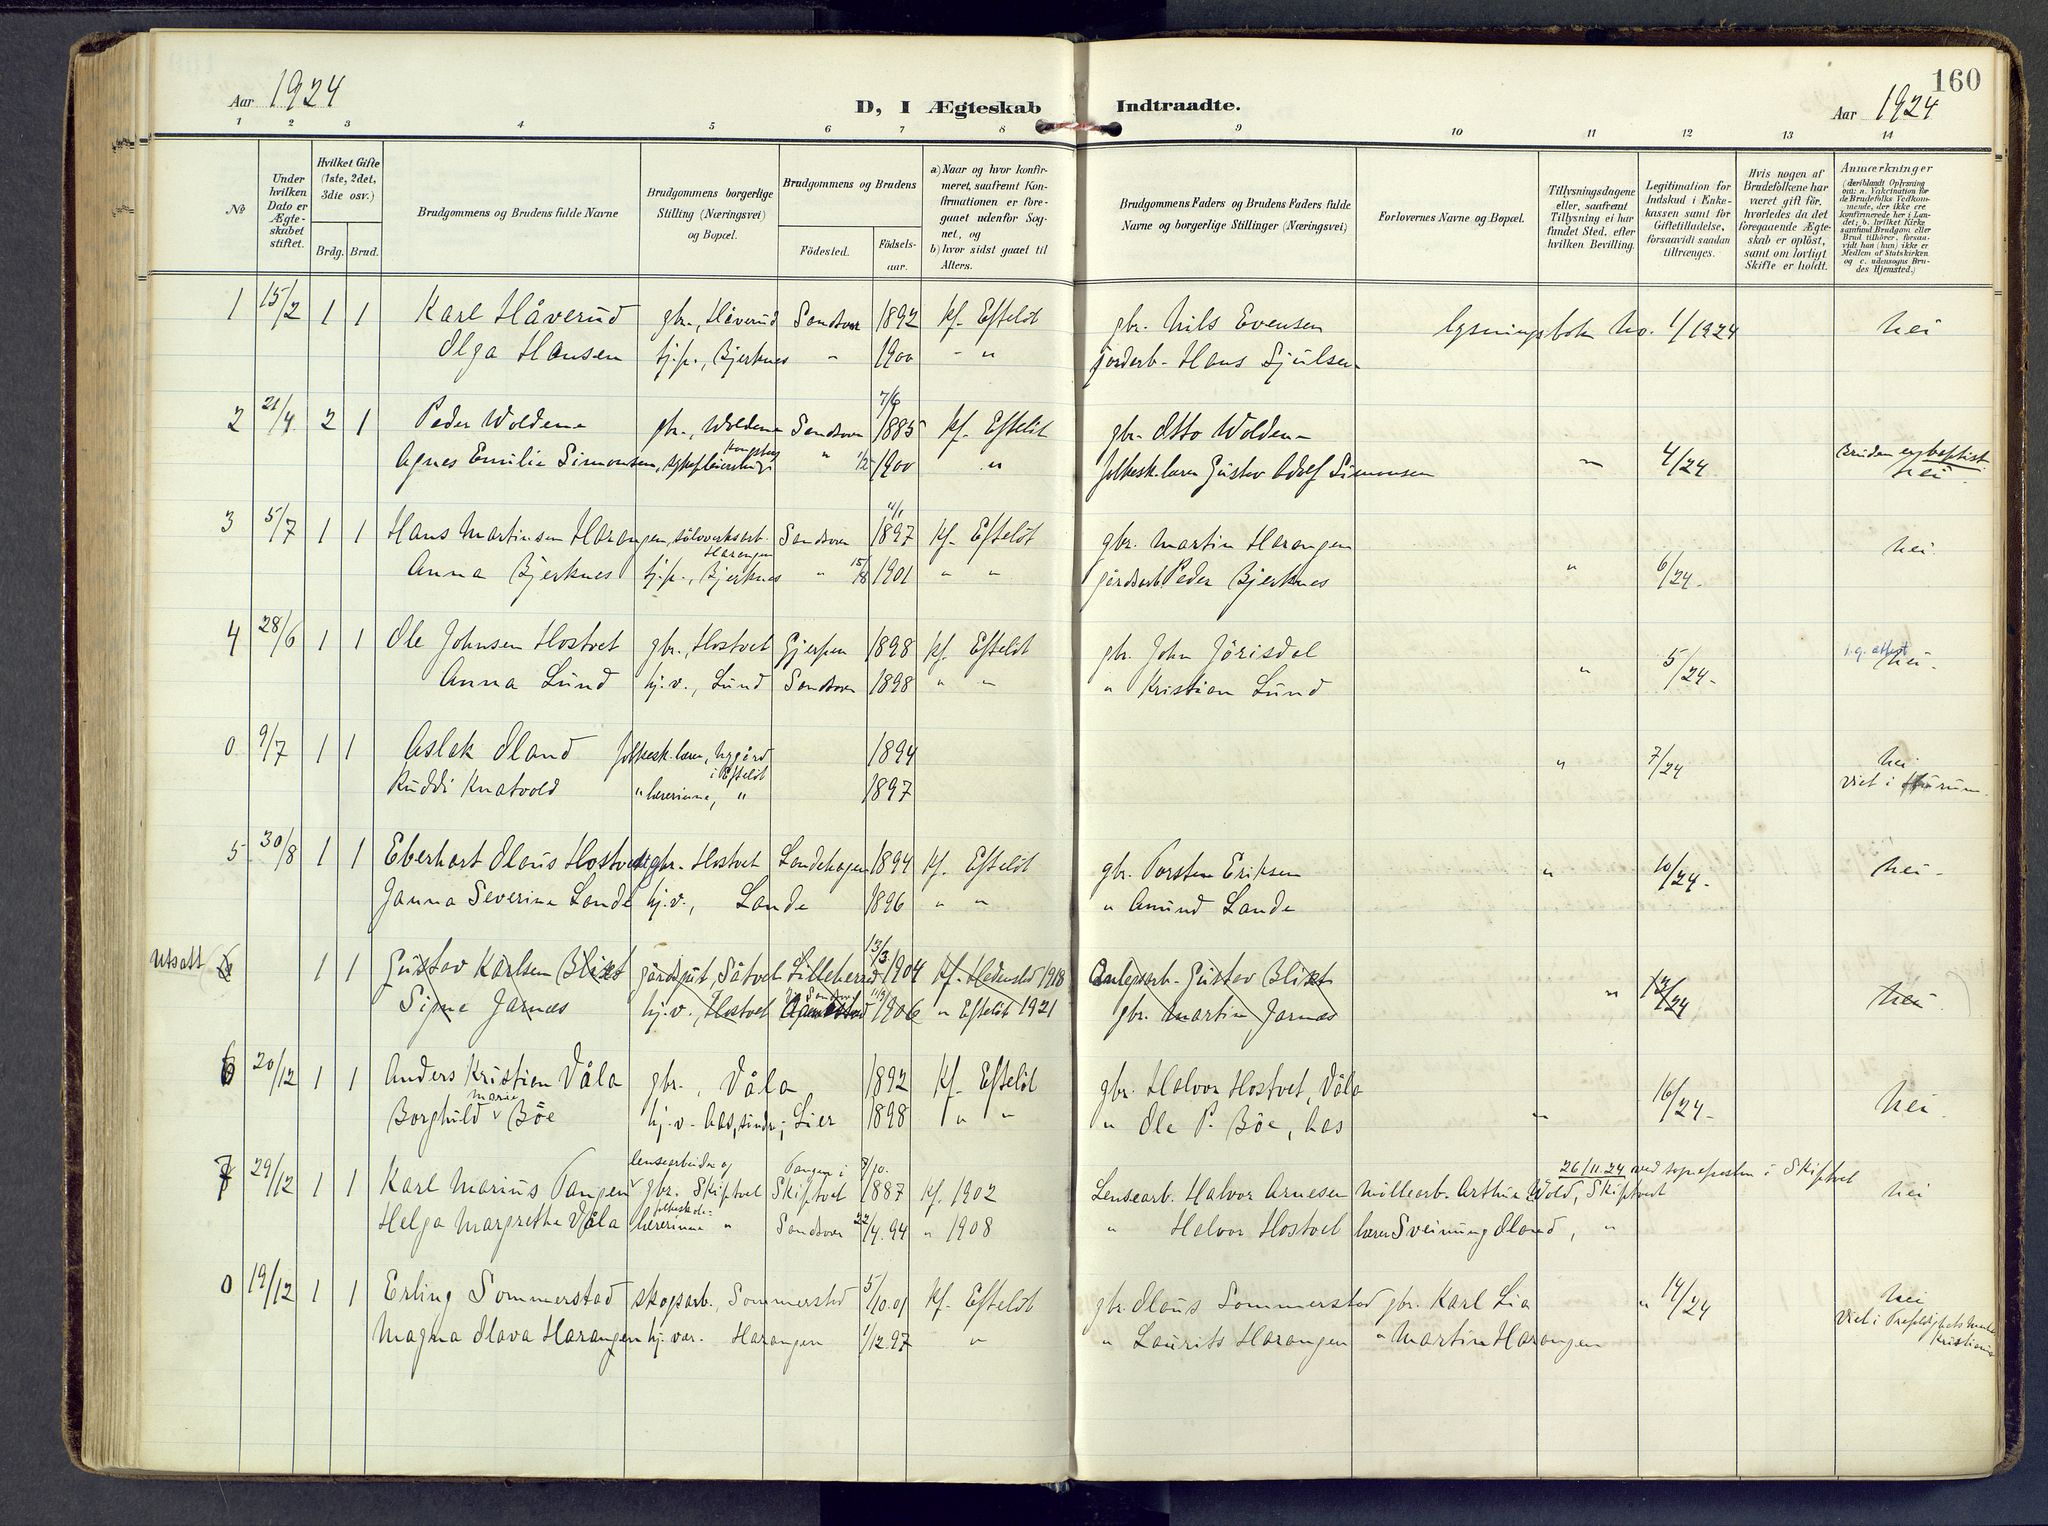 160
Aar 1924
D, I Ægteskab Indtraadte.
Aar 1924
1 2 3 4 5 6 7 8 9 10 11 12 13 14
No
Under hvilken Dato er Ægteskabet stiftet.
Hvilket Gifte (1ste, 2det, 3die osv.)
Brdg. Brud.
Brudgommens og Brudens fulde Navne
Brudgommens borgerlige Stilling (Næringsvei) og Bopæl.
Brudgommens og Brudens
Födested. Födselsaar.
a) Naar og hvor konfirmeret, saafremt Konfirmationen er foregaaet udenfor Sognet, og
b) hvor sidst gaaet til Alters.
Brudgommens Faders og Brudens Faders fulde Navne og borgerlige Stillinger (Næringsvei)
Forlovernes Navne og Bopæl.
Tillysningsdagene eller, saafremt Tillysning ei har fundet Sted, efter hvilken Bevilling.
Legitimation for Indskud i Enkekassen samt for Giftetilladelse, forsaavidt saadan tiltrænges.
Hvis nogen af Brudefolkene har været gift för, hvorledes da det foregaaende Ægteskab er oplöst, samt om lovligt Skifte er holdt.
Anmærkninger
(deriblandt Oplysning om: a. Vakcination for de Brudefolks Vedkommende, der ikke ere konfirmerede her i Landet; b. hvilket Kirkesamfund Brudgom eller Brud tilhörer, forsaavidt han (hun) ikke er Medlem af Statskirken og c. udensogns Brudes Hjemsted.)
1 15/2 1 1 Karl Håverud gbr., Håverud Sandsver 1892 kf. Efteløt gbr. Nils Evensen lysningsbok no. 1/1924 nei
Olga Hansen tj.p., Bjerknes " 1900 " " jorderb. Hans Sjulsen
2 21/4 2 1 Peder Woldene gbr., Woldene Sandsver 7/6 1885 kf. Efteløt gbr. Otto Wolden
Agnes Emilie Simonsen, Kongsberg " 1/2 1900 " folkesk.lærer Gustav Adolf Simonsen " 4/24 Bruden er baptist. nei
3 5/7 1 1 Hans Martinsen Harangen, sølvverksarb. Harangen Sandsver 1897 kf. Efteløt gbr. Martin Harangen nei.
Anna Bjerknes tj.p., Bjerknes " 15/8 1901 " " gårdsarb. Peder Bjerknes " 6/24.
4 28/6 1 1 Ole Johnsen Hostvet gbr., Hostvet Gjerpen 1898 kf. Efteløt gbr. John Jörisdal nei.
Anna Lund hj.v., Lund Sandsver 1898 " " " Kristian Lund " 5/24.
0 9/7 1 1 Aslak Oland folkesk.lærer, Nygård i Efteløt 1894 " 7/24 nei
Ruddi Knatvold " lærerinne, " 1897 viet i Hurum.
5 30/8 1 1 Eberhart Olaus Hostvedt gbr. Hostvet Landehagen 1894 kf. Efteløt gbr. Torsten Eriksen " 10/24. nei.
Janna Severine Lande hj.v., Lande 1896 " " " Amund Lande
Utsatt 6 1 1 Gustav Karlsen Blixt gårdsgut, Såtvet Lilleherred 13/3 1904 kf. Hedenstad 1918 Anlegsarb. Gustav Blixt " 12/24 nei
Signe Jarnæs hj.v., Hostvet 1906 " Efteløt 1921 gbr. Martin Jarnæs
6 20/12 1 1 Anders Kristian Våla gbr., Våla 1892 kf. Efteløt gbr. Halvor Hostvet, Våla 16/24. nei.
Borghild Marie Böe hj.v. Aas, Lier 1898 " " " Ole P. Böe, Aas "
7 29/12 1 1 Karl Marius Tangen lensearbeider og gbr. Skiptvet Tangen i Skiptvet 7/10. 1887 kf. 1902 Lensearb. Halvor Arnesen møllearb. Arthur Wold, Skiptvet 26/11.24 ved sognepresten i Skiptvet nei
Helga Margrethe Våla folkeskole-lærerinne " Sandsver 22/4.94 " 1908 " Halvor Hostvet lærer Sveinung Oland, "
0 19/12 1 1 Erling Sommerstad skogsarb., Sommerstad 5/10.01 kf. Efteløt gbr. Olaus Sommerstad gbr. Karl Lia " 14/24 nei
Magna Olava Harangen hj.vær. Harangen 1/12.97 " " Laurits Harangen " Martin Harangen viet i Trefoldighets Kristiania